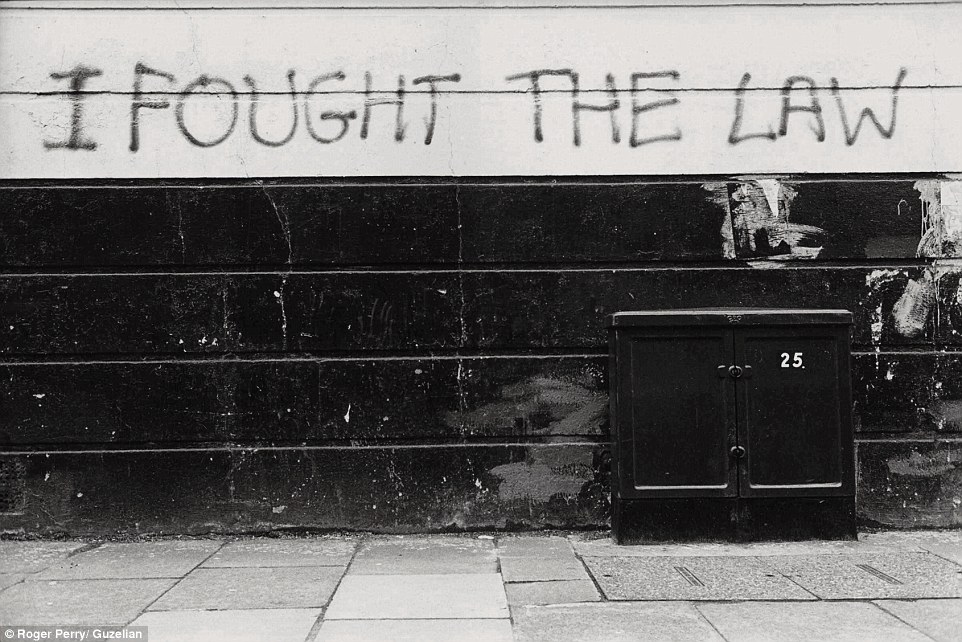 I FOUGHT THE LAW
25
© Roger Perry/ Guzelian